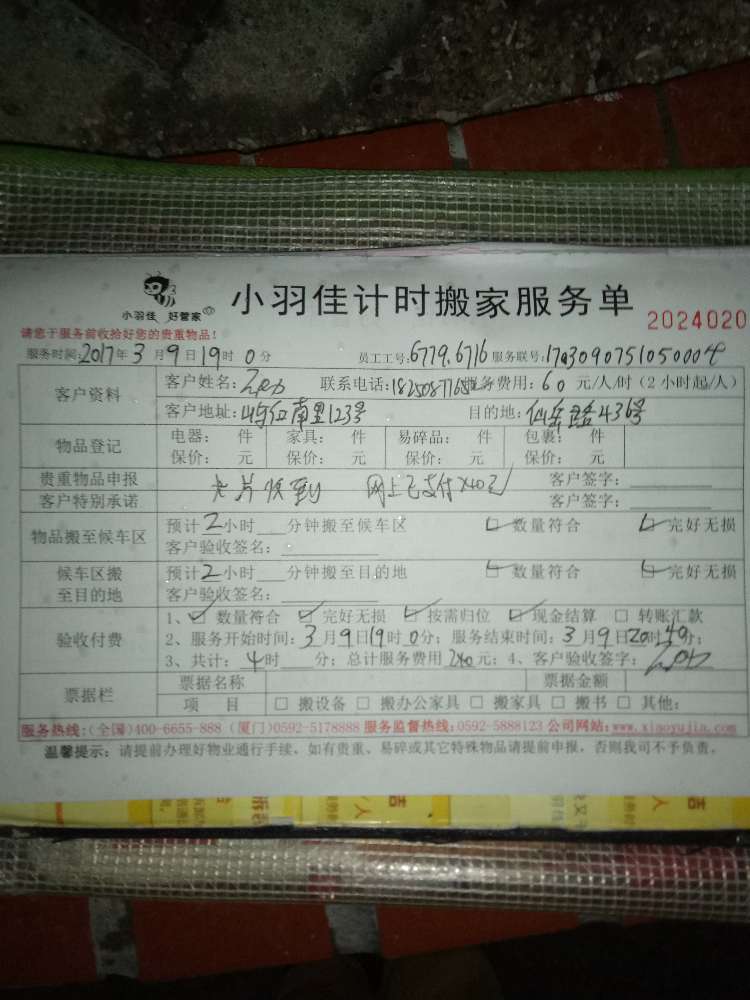 小羽佳 好管家
小羽佳计时搬家服务单
2024020
请您于服务前收拾好您的贵重物品!
服务时间:2017年3月9日19时0分 员工工号:6779.6716 服务联号:
客户资料
客户姓名: 联系电话: 服务费用:60元/人/时(2小时起/人)
客户地址: 南里123号 目的地:仙岳路436号
物品登记
电器: 件 家具: 件 易碎品: 件 包裹: 件
保价: 元 保价: 元 保价: 元 保价: 元
贵重物品申报 客户签字:
客户特别承诺 网上已支付 客户签字:
物品搬至候车区
预计2小时 分钟搬至候车区 ☑ 数量符合 ☑ 完好无损
客户验收签名:
候车区搬至目的地
预计2小时 分钟搬至目的地 ☑ 数量符合 ☑ 完好无损
客户验收签名:
验收付费
1、☑ 数量符合 ☑ 完好无损 ☑ 按需归位 ☑ 现金结算 □ 转账汇款
2、服务开始时间:3月9日19时0分;服务结束时间:3月9日20时40分;
3、共计:4时 分;总计服务费用240元;4、客户验收签字:
票据栏
票据名称 票据金额
项 目 □ 搬设备 □ 搬办公家具 □ 搬家具 □ 搬书 □ 其他:
服务热线:(全国)400-6655-888 (厦门)0592-5178888 服务监督热线:0592-5888123 公司网站:www.xiaoyujia.com
温馨提示:请提前办理好物业通行手续,如有贵重、易碎或其它特殊物品请提前申报,否则我司不予负责。